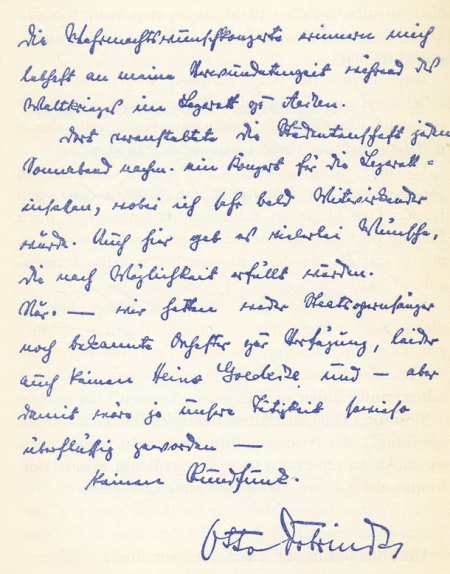 Die Wehrmachtswunschkonzerte erinnern mich
lebhaft an meine Verwundetenzeit während des
Weltkrieges im Lazarett zu Aachen.
Dort veranstaltete die Studentenschaft jeden
Sonnabend nachm. ein Konzert für die Lazarett-
insassen, wobei ich sehr bald Mitwirkender
wurde. Auch hier gab es vielerlei Wünsche,
die nach Möglichkeit erfüllt wurden.
Nur. — wir hatten weder Staatsopernsänger
noch bekannte Orchester zur Verfügung, leider
auch keinen Heinz Goedecke und — aber
damit wäre ja unsere Tätigkeit sowieso
überflüssig geworden —
keinen Rundfunk.
Otto Dobrindt